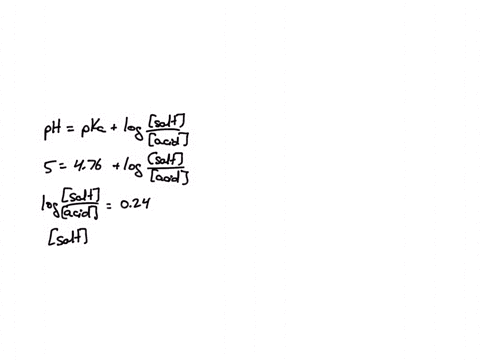 pH = pKa + log [salt]/[acid]
5 = 4.76 + log [salt]/[acid]
log [salt]/[acid] = 0.24
[salt]